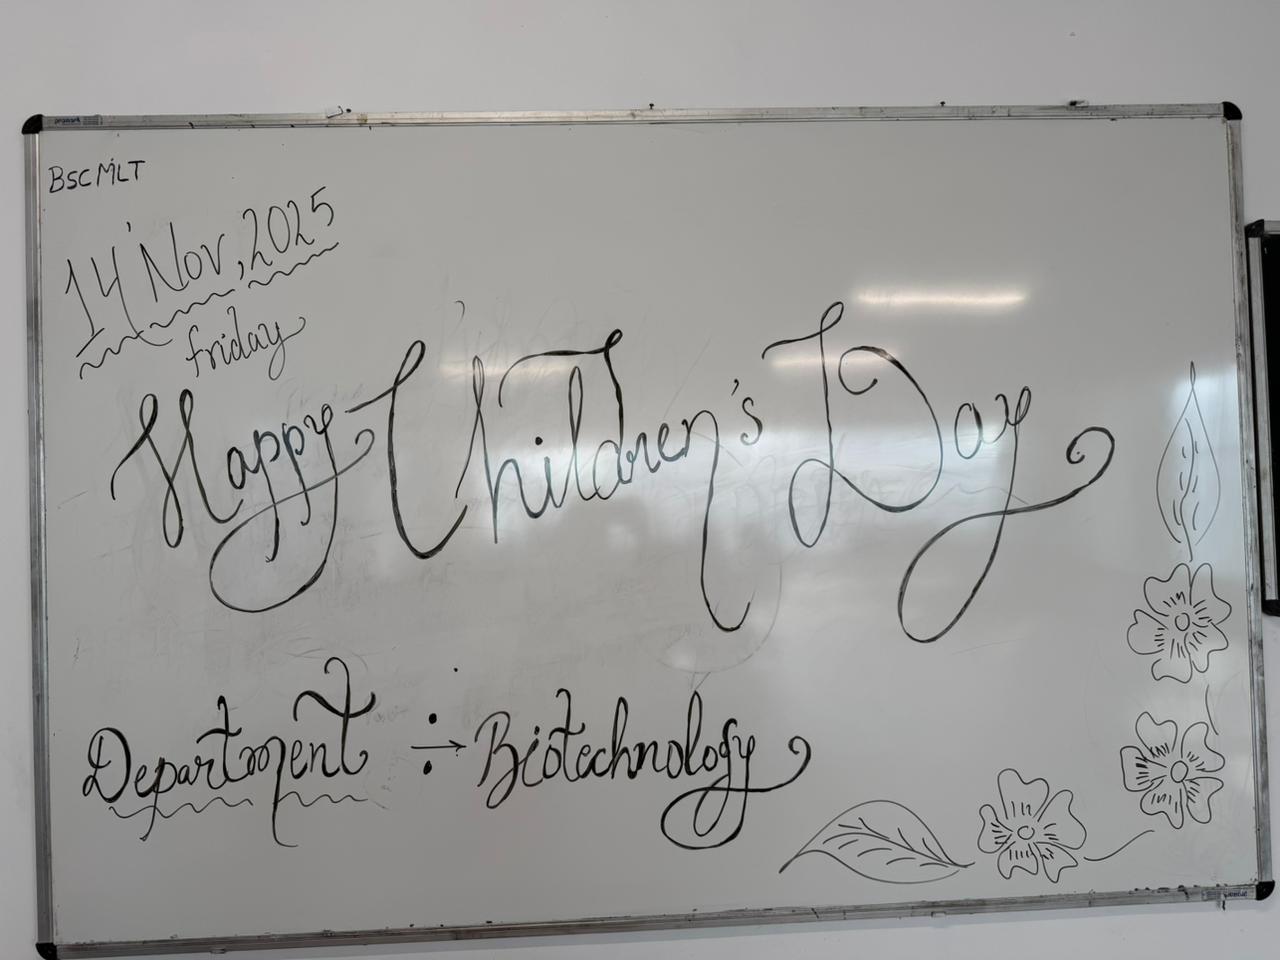 BSC MLT
14 Nov, 2025
friday
Happy Children's Day
Department :→ Biotechnology